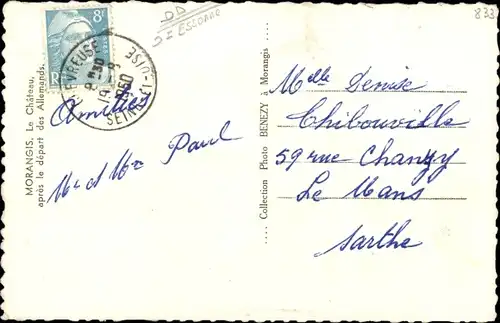 8F
CHEVREUSE
8H30
19-9
1950
SEINE-ET-OISE
833
Amitiés
Mr et Mme Paul
MORANGIS. Le Château,
après le départ des Allemands.
.... Collection Photo BENEZY à Morangis ....
Melle Denise
Thibouville
59 rue Chanzy
Le Mans
Sarthe